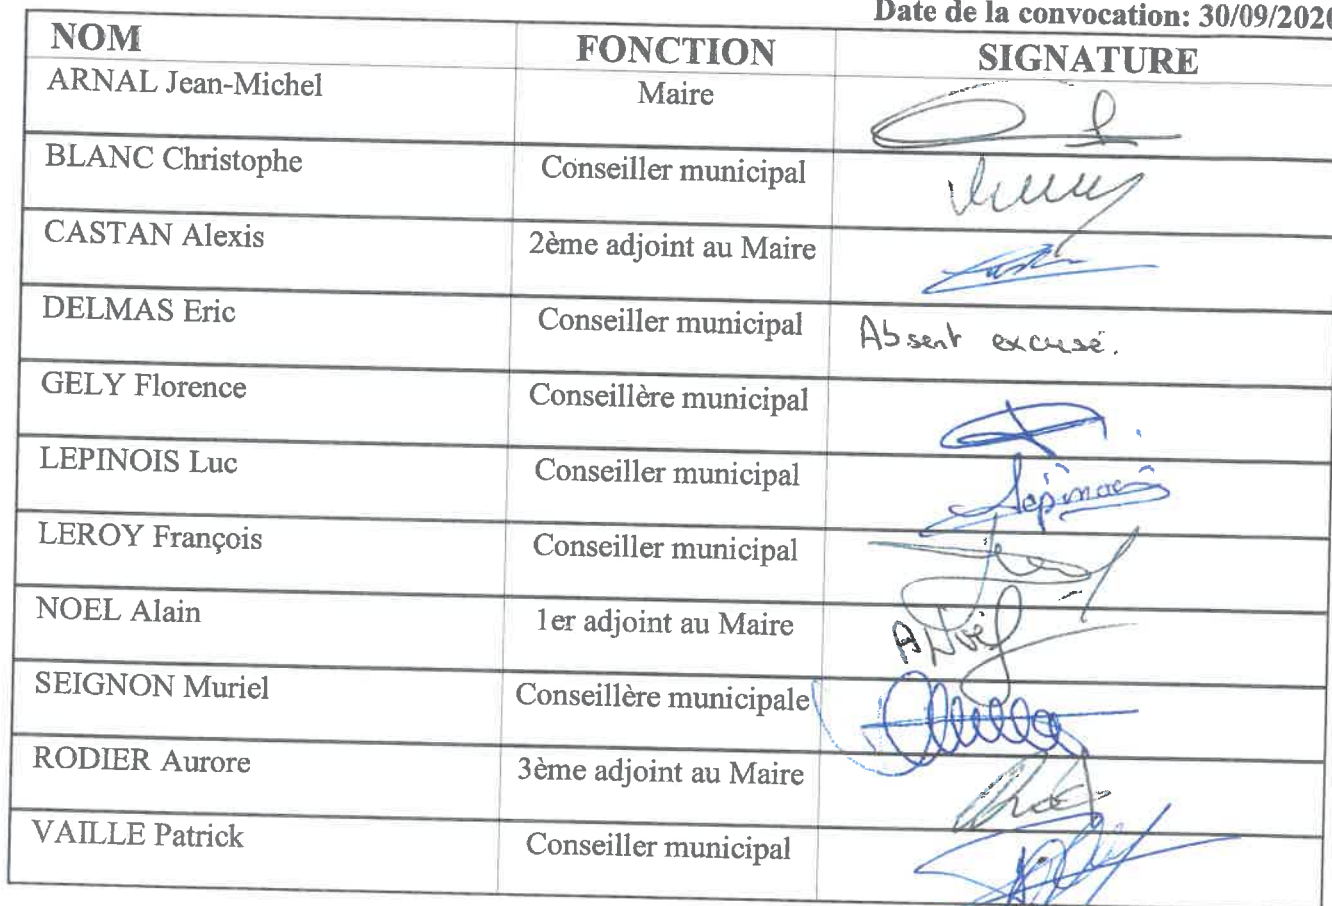 Date de la convocation: 30/09/2020
NOM FONCTION SIGNATURE
ARNAL Jean-Michel Maire
BLANC Christophe Conseiller municipal
CASTAN Alexis 2ème adjoint au Maire
DELMAS Eric Conseiller municipal Absent excusé.
GELY Florence Conseillère municipal
LEPINOIS Luc Conseiller municipal Lepinois
LEROY François Conseiller municipal
NOEL Alain 1er adjoint au Maire A Noël
SEIGNON Muriel Conseillère municipale
RODIER Aurore 3ème adjoint au Maire
VAILLE Patrick Conseiller municipal